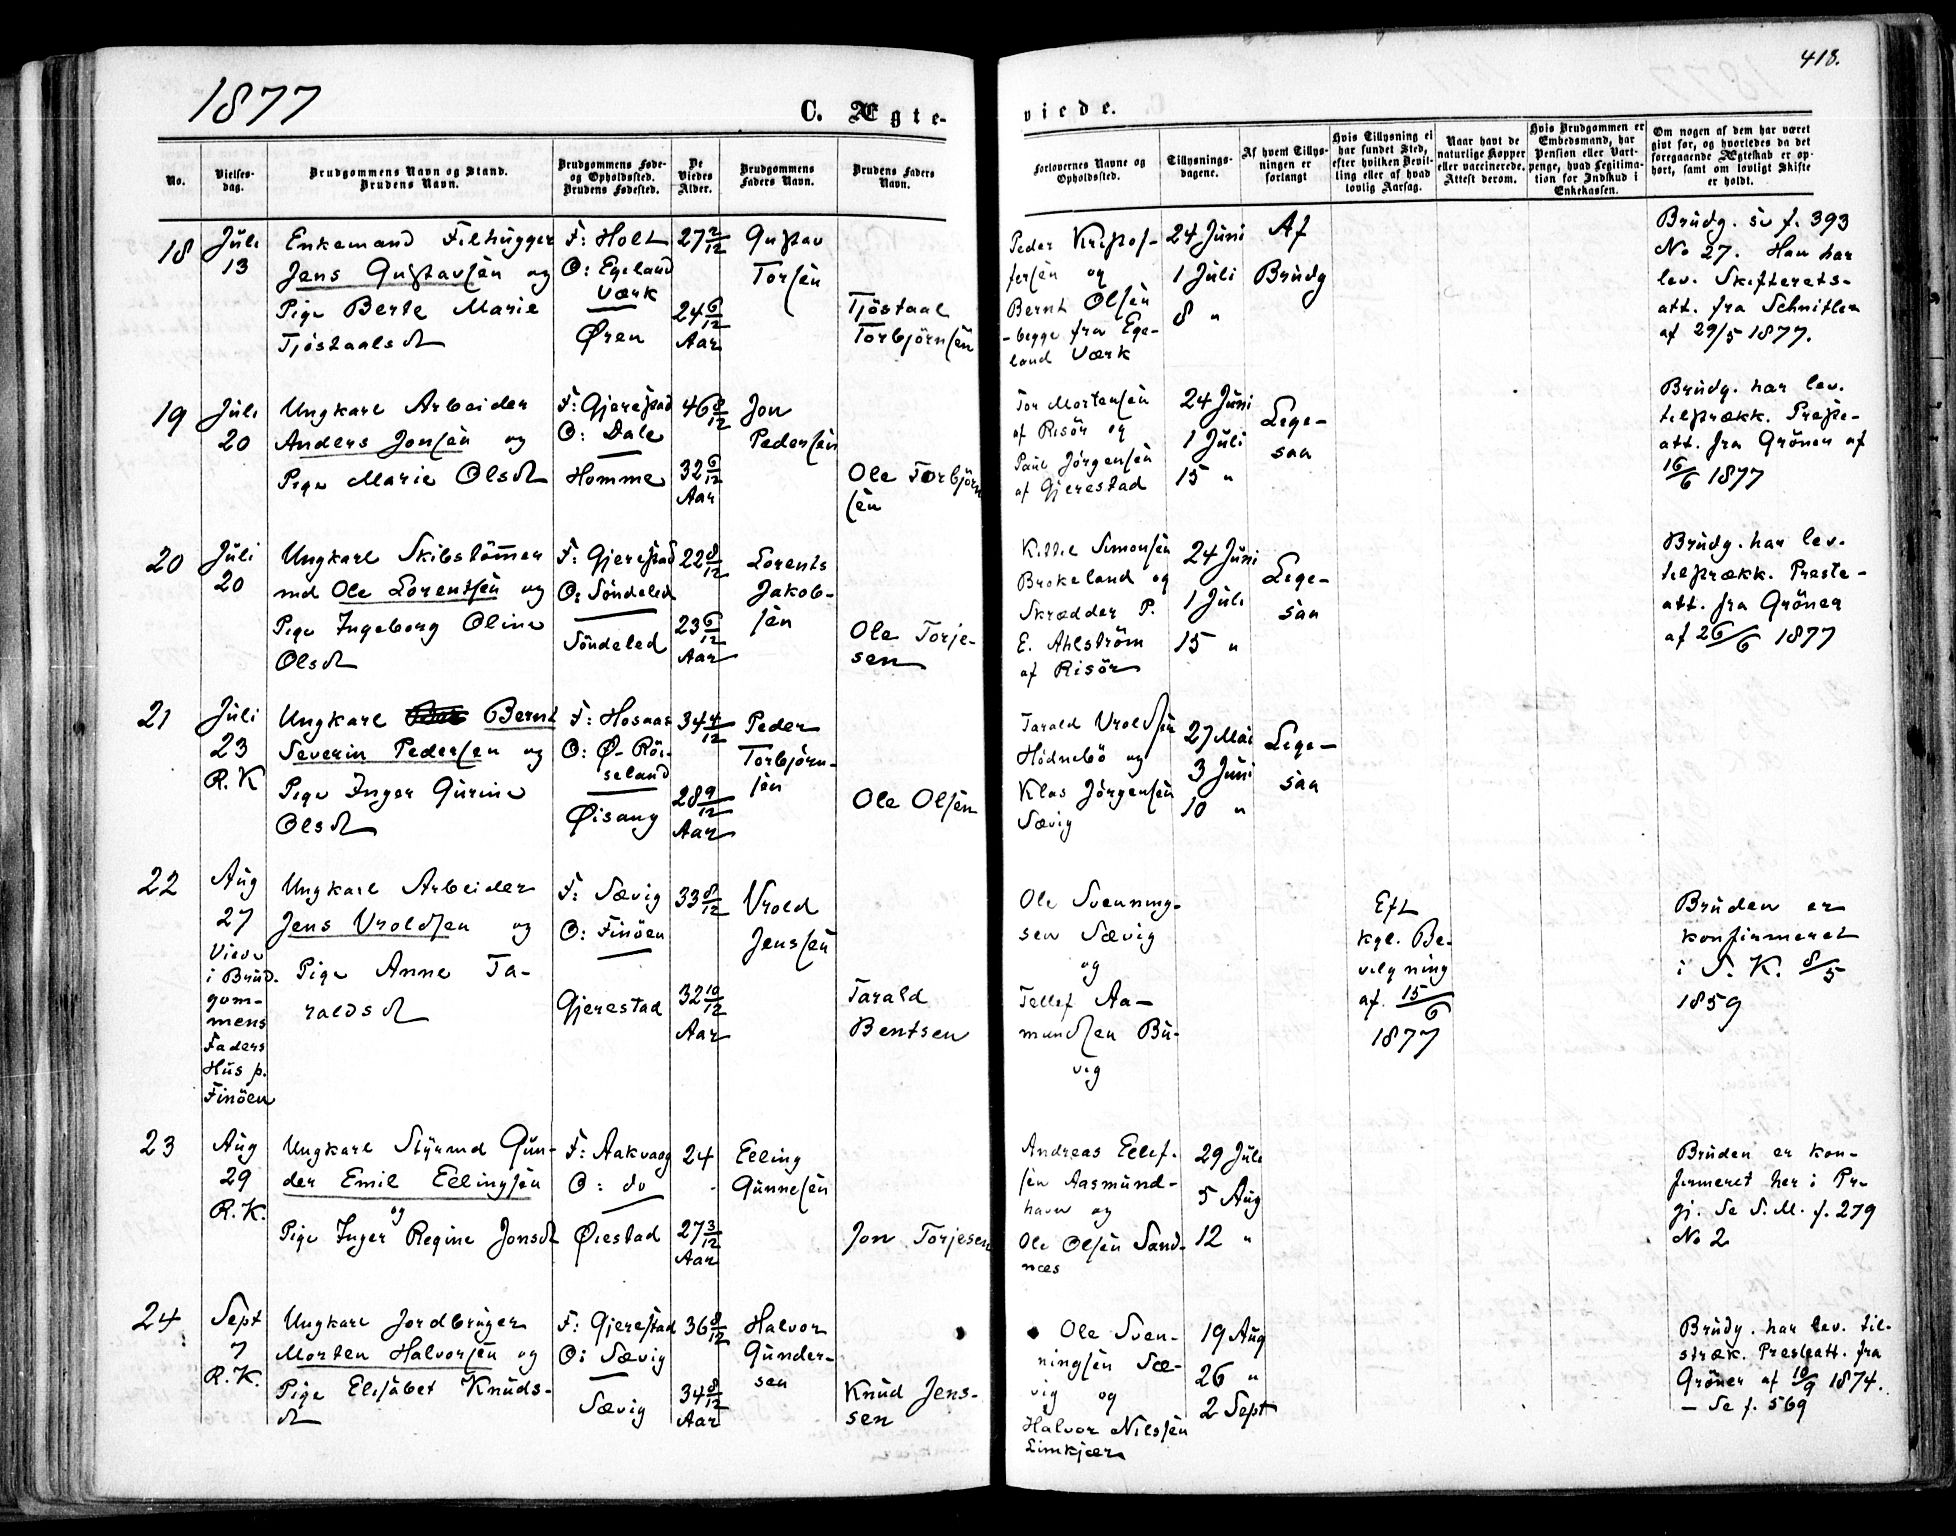 1877
C. Ægte-
No.
Vielses-
dag.
Brudgommens Navn og Stand.
Brudens Navn.
Brudgommens Føde-
og Opholdssted.
Brudens Fødested.
De
Viedes
Alder.
Brudgommens
Faders Navn.
Brudens Faders
Navn.
18
Juli
13
Enkemand Filhugger
Jens Gustavsen og
Pige Berte Marie
Tjöstaalsd
F: Holt
O: Egeland
Værk
Øren
27 2/12
24 6/12
Aar
Gustav
Torsen
Tjöstaal
Torbjörnsen
19
Juli
20
Ungkarl Arbeider
Anders Jonsen og
Pige Marie Olsd
F: Gjerestad
O: Dale
Homme
46 8/12
32 6/12
Aar
Jon
Pedersen
Ole Torbjörn
sen
20
Juli
20
Ungkarl Skibstömmer
md Ole Lorentsen og
Pige Ingeborg Oline
Olsd
F: Gjerestad
O: Söndeled
Söndeled
22 8/12
23 6/12
Aar
Lorents
Jakob-
sen
Ole Torje-
sen
21
Juli
23
R.K
Ungkarl Bernt
Severin Pedersen og
Pige Inger Gurine
Olsd
F: Hosaas
O: Ø- Röi-
seland
Øisang
34 4/12
28 9/12
Aar
Peder
Torbjörn-
sen
Ole Olsen
22
Aug
27
Viede
i Brud-
gom-
mens
Faders
Hus p.
Finöen
Ungkarl Arbeider
Jens Vroldsen og
Pige Anne Ta-
raldsd
F: Sævig
O: Finöen
Gjerestad
33 8/12
32 10/12
Aar
Vrold
Jenssen
Tarald
Bentsen
23
Aug
29
R.K.
Ungkarl Styrmd Gun-
der Emil Ellingsen
og
Pige Inger Regine Jonsd
F: Aakvaag
O: do
Øiestad
24
27 3/12
Aar
Elling
Gunnesen
Jon Torjesen
24
Sept
7
R.K.
Ungkarl Jordbruger
Morten Halvorsen og
Pige Elisabet Knuds-
d
F: Gjerestad
O: Sævig
Sævig
36 8/12
34 8/12
Aar
Halvor
Gunder-
sen
Knud Jens-
sen
418.
viede.
Forlovernes Navne og
Opholdssted.
Tillysnings-
dagene.
Af hvem Tillys-
ningen er
forlangt
Hvis Tillysning ei
har fundet Sted,
efter hvilken Bevil-
ling eller af hvad
lovlig Aarsag.
Naar havt de
naturlige Kopper
eller vaccinerede.
Attest derom.
Hvis Brudgommen er
Embedsmand, har
Pension eller Vart-
penge, hvad Legitima-
tion for Indskud i
Enkekassen.
Om nogen af dem har været
gift før, og hvorledes da det
foregaaende Ægteskab er op-
hørt, samt om lovligt Skifte
er holdt.
Peder Kristof-
fersen og
Bernt Olsen
- begge fra Ege-
land Værk
24 Juni
1 Juli
8 "
Af
Brudg
Brudg. se f. 393
No 27. Han har
lev. Skifterets-
att. fra Schnitler
af 29/5 1877.
Tor Mortensen
af Risör og
Paul Jörgensen
af Gjerestad
24 Juni
1 Juli
15 "
Lige-
saa
Brudg. har lev.
tilstrækk. Preste-
att. fra Gröner af
16/6 1877
Kittil Simonsen
Brokeland og
Skrædder P.
E. Ahlström
af Risör
24 Juni
1 Juli
15 "
Lige-
saa
Brudg. har lev.
tilstrækk. Preste-
att. fra Gröner
af 26/6 1877
Tarald Vroldsen
Hödnebö og
Klas Jörgensen
Sævig
27 Mai
3 Juni
10 "
Lige-
saa
Ole Svenning-
sen Sævig
og
Tellef Aa-
mundsen Bu-
vig
Eft
kgl. Be-
vilgning
af. 15/6
1877
Bruden er
konfirmeret
i S. K. 8/5
1859
Andreas Ellef-
sen Aasmund-
havn og
Ole Olsen Sand-
næs
29 Juli
5 Aug
12 "
Bruden er kon-
firmeret her i Pr-
gj. Se S.M. f. 279
No 2
Ole Sven-
ningsen Sæ-
vig og
Halvor Nilssen
Limkjær
19 Aug
26 "
2 Sept
Brudg. har lev. til-
stræk. Presteatt. fra
Gröner af 10/9 1874.
- Se f. 569